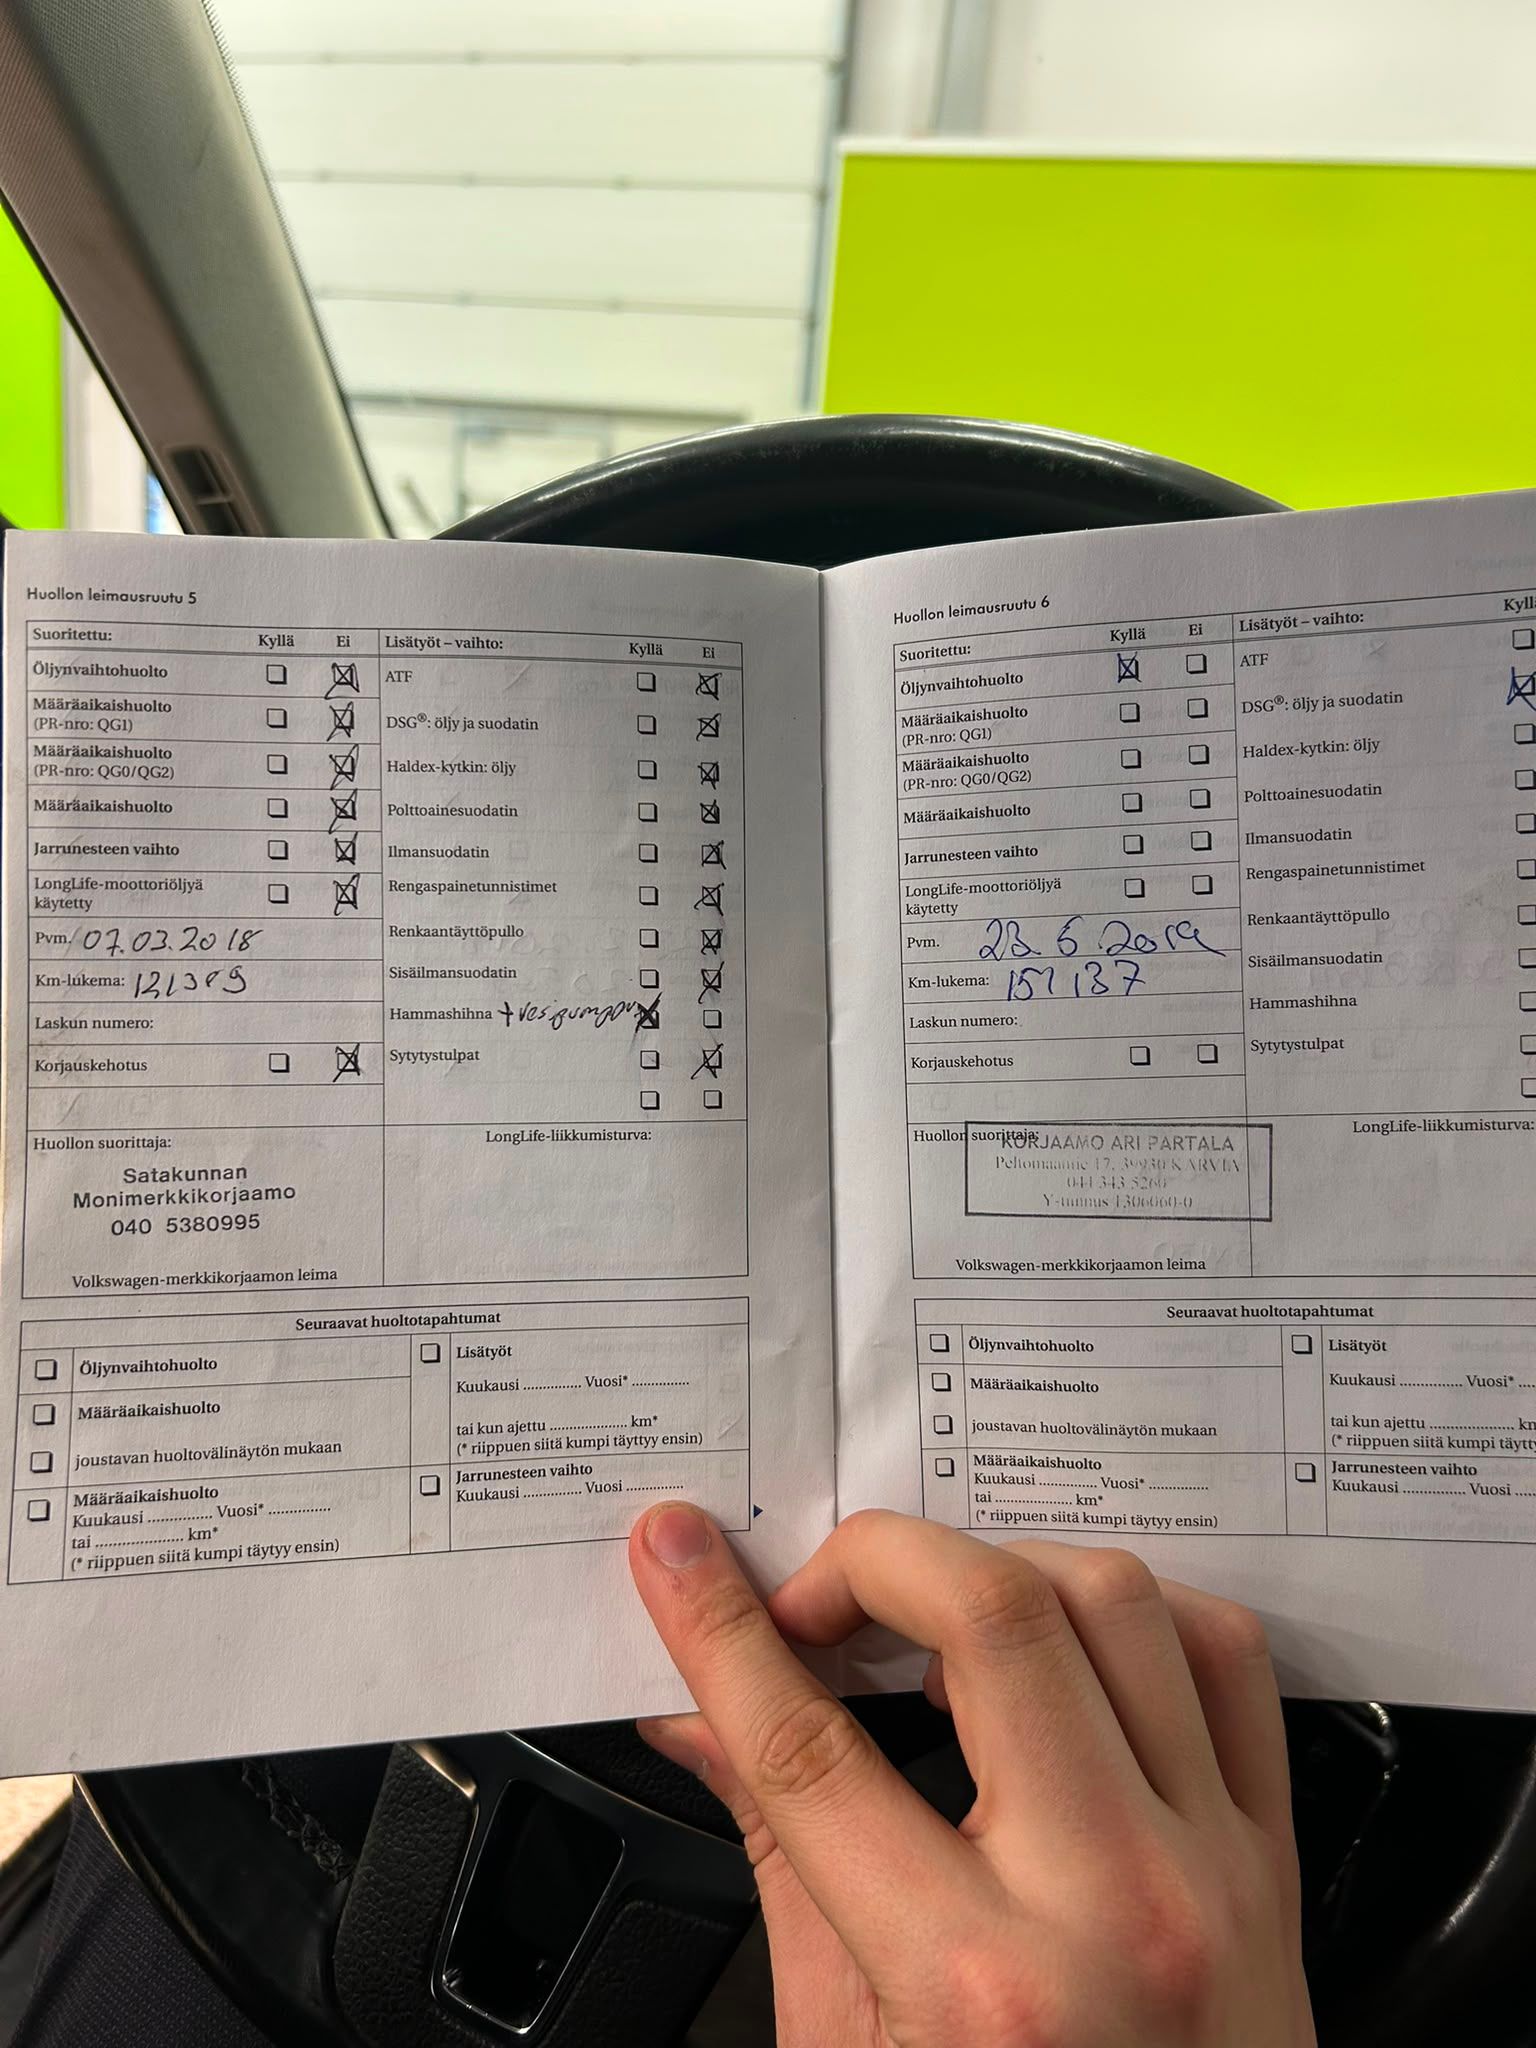 Huollon leimausruutu 5
Suoritettu: Kyllä Ei
Öljynvaihtohuolto
Määräaikaishuolto
(PR-nro: QG1)
Määräaikaishuolto
(PR-nro: QG0/QG2)
Määräaikaishuolto
Jarrunesteen vaihto
LongLife-moottoriöljyä
käytetty
Pvm. 07.03.2018
Km-lukema: 121389
Laskun numero:
Korjauskehotus
Lisätyöt – vaihto: Kyllä Ei
ATF
DSG®: öljy ja suodatin
Haldex-kytkin: öljy
Polttoainesuodatin
Ilmansuodatin
Rengaspainetunnistimet
Renkaantäyttöpullo
Sisäilmansuodatin
Hammashihna
Sytytystulpat
Huollon suorittaja:
Satakunnan
Monimerkkikorjaamo
040 5380995
Volkswagen-merkkikorjaamon leima
LongLife-liikkumisturva:
Seuraavat huoltotapahtumat
Öljynvaihtohuolto
Määräaikaishuolto
joustavan huoltovälinäytön mukaan
Määräaikaishuolto
Kuukausi ............... Vuosi* ..............
tai .................... km*
(* riippuen siitä kumpi täytyy ensin)
Lisätyöt
Kuukausi .............. Vuosi* ..............
tai kun ajettu .................... km*
(* riippuen siitä kumpi täyttyy ensin)
Jarrunesteen vaihto
Kuukausi .............. Vuosi ..............
Huollon leimausruutu 6
Suoritettu: Kyllä Ei
Öljynvaihtohuolto
Määräaikaishuolto
(PR-nro: QG1)
Määräaikaishuolto
(PR-nro: QG0/QG2)
Määräaikaishuolto
Jarrunesteen vaihto
LongLife-moottoriöljyä
käytetty
Pvm. 23.6.2019
Km-lukema: 151137
Laskun numero:
Korjauskehotus
Lisätyöt – vaihto: Kyllä
ATF
DSG®: öljy ja suodatin
Haldex-kytkin: öljy
Polttoainesuodatin
Ilmansuodatin
Rengaspainetunnistimet
Renkaantäyttöpullo
Sisäilmansuodatin
Hammashihna
Sytytystulpat
Huollon suorittaja:
KORJAAMO ARI PARTALA
17, 39930 KARVIA
044 343 5260
Y-tunnus 1306060-0
Volkswagen-merkkikorjaamon leima
LongLife-liikkumisturva:
Seuraavat huoltotapahtumat
Öljynvaihtohuolto
Määräaikaishuolto
joustavan huoltovälinäytön mukaan
Määräaikaishuolto
Kuukausi .............. Vuosi* ..............
tai .................... km*
(* riippuen siitä kumpi täytyy ensin)
Lisätyöt
Kuukausi .............. Vuosi* ....
tai kun ajettu .................... km
(* riippuen siitä kumpi täytty
Jarrunesteen vaihto
Kuukausi .............. Vuosi .....